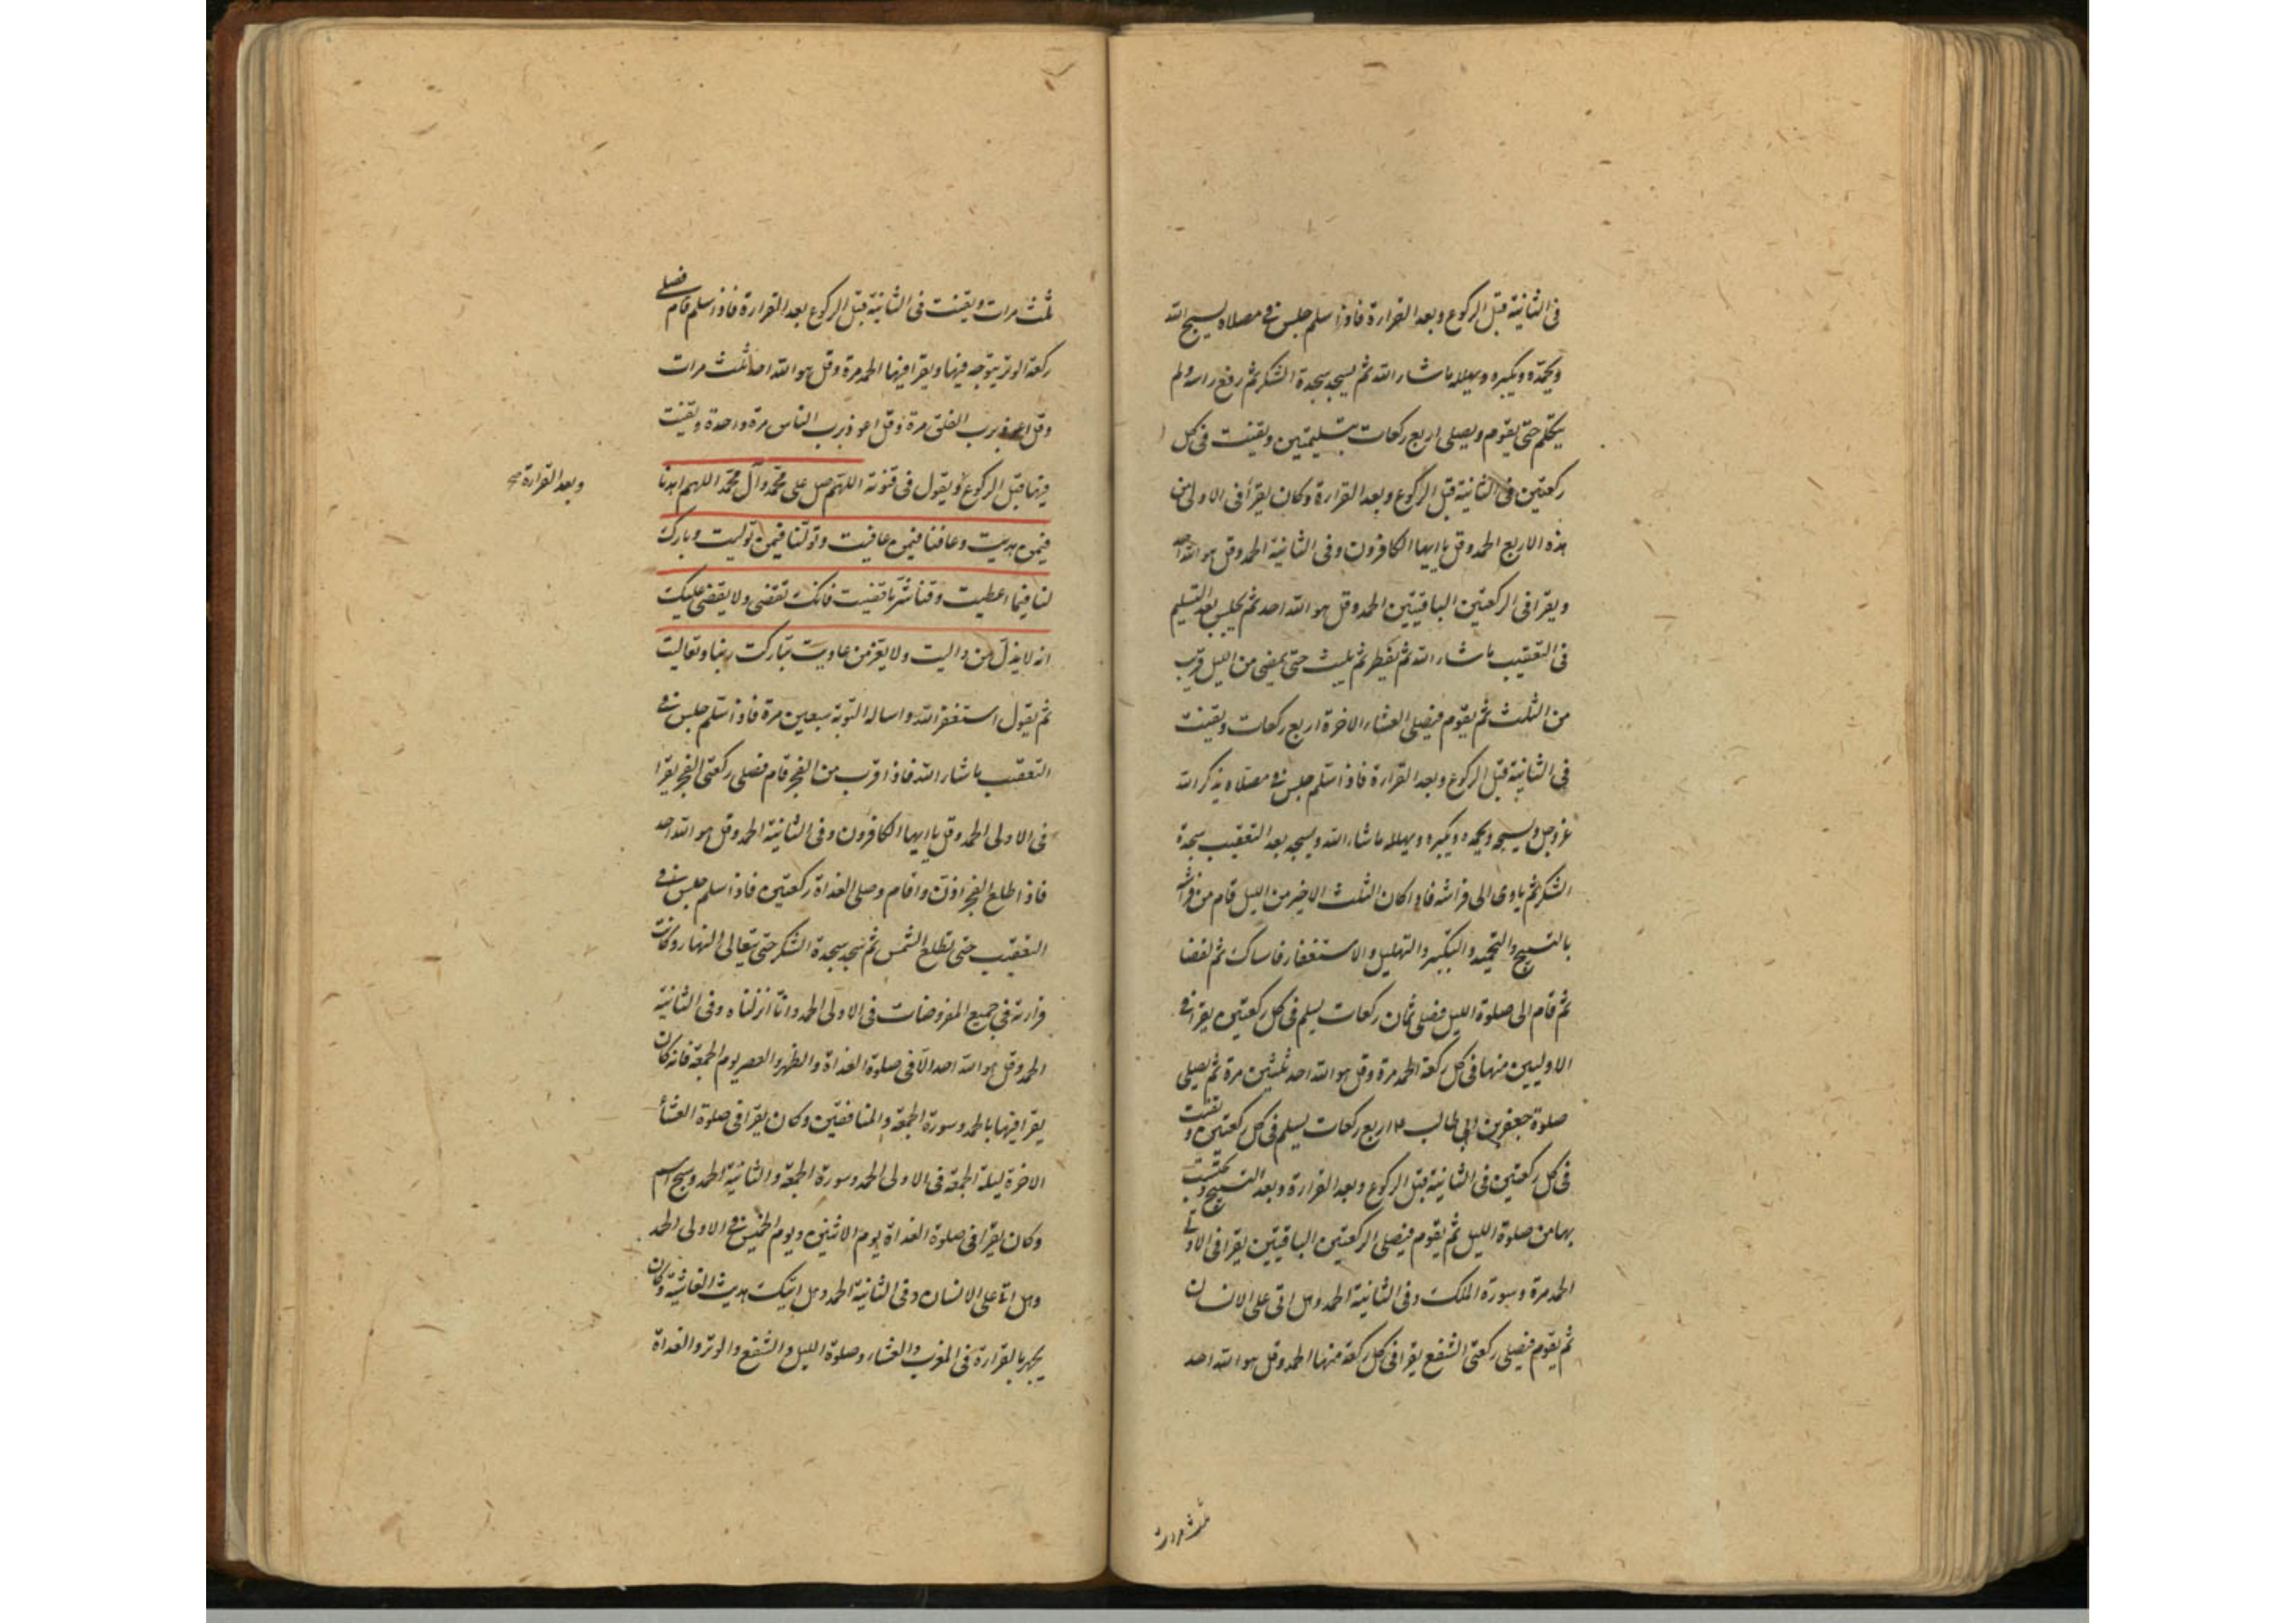 فی الثانیة قبل الرکوع وبعد القراءة فاذا سلم جلس فی مصلاه یسبح الله
ویحمده ویکبره ویهلله ماشاء الله ثم یسجد سجدة الشکر ثم رفع راسه ولم
یتکلم حتی یقوم ویصلی اربع رکعات بتسلیمتین ویقنت فی کل
رکعتین فی الثانیة قبل الرکوع وبعد القراءة وکان یقرأ فی الاولی من
هذه الاربع الحمد وقل یا ایها الکافرون وفی الثانیة الحمد وقل هو الله احد
ویقرا فی الرکعتین الباقیتین الحمد وقل هو الله احد ثم یجلس بعد التسلیم
فی التعقیب ماشاء الله ثم یفطر ثم یلبث حتی یمضی من اللیل قریب
من الثلث ثم یقوم فیصلی العشاء الاخرة اربع رکعات ویقنت
فی الثانیة قبل الرکوع وبعد القراءة فاذا سلم جلس فی مصلاه یذکر الله
عز وجل ویسبحه ویحمده ویکبره ویهلله ماشاء الله ویسجد بعد التعقیب سجدة
الشکر ثم یاوی الی فراشه فاذا کان الثلث الاخیر من اللیل قام من فراشه
بالتسبیح والتحمید والتکبیر والتهلیل والاستغفار فاستاک ثم توضا
ثم قام الی صلوة اللیل فصلی ثمان رکعات یسلم فی کل رکعتین یقرا فی
الاولیین منها فی کل رکعة الحمد مرة وقل هو الله احد ثلثین مرة ثم یصلی
صلوة جعفر بن ابی طالب ع اربع رکعات یسلم فی کل رکعتین ویقنت
فی کل رکعتین فی الثانیة قبل الرکوع وبعد القراءة وبعد التسبیح ویحتسب
بها من صلوة اللیل ثم یقوم فیصلی الرکعتین الباقیتین یقرا فی الاولی
الحمد مرة وسورة الملک وفی الثانیة الحمد وهل اتی علی الانسان
ثم یقوم فیصلی رکعتی الشفع یقرا فی کل رکعة منها الحمد وقل هو الله احد
ثلث مرات
ثلث مرات ویقنت فی الثانیة قبل الرکوع بعد القراءة فاذا سلم قام فصلی
رکعة الوتر یتوجه فیها ویقرا فیها الحمد مرة وقل هو الله احد ثلث مرات
وقل اعوذ برب الفلق مرة وقل اعوذ برب الناس مرة واحدة ویقنت
فیها قبل الرکوع ویقول فی قنوته اللهم صل علی محمد وآل محمد اللهم اهدنا
وبعد القراءة صح
فیمن هدیت وعافنا فیمن عافیت وتولنا فیمن تولیت وبارک
لنا فیما اعطیت وقنا شر ما قضیت فانک تقضی ولا یقضی علیک
انه لا یذل من والیت ولا یعز من عادیت تبارکت ربنا وتعالیت
ثم یقول استغفر الله واساله التوبة سبعین مرة فاذا سلم جلس فی
التعقیب ماشاء الله فاذا قرب من الفجر قام فصلی رکعتی الفجر یقرا
فی الاولی الحمد وقل یا ایها الکافرون وفی الثانیة الحمد وقل هو الله احد
فاذا طلع الفجر اذن واقام وصلی الغداة رکعتین فاذا سلم جلس فی
التعقیب حتی تطلع الشمس ثم سجد سجدة الشکر حتی یتعالی النهار وکانت
قراءته فی جمیع المفروضات فی الاولی الحمد وانا انزلناه وفی الثانیة
الحمد وقل هو الله احد الا فی صلوة الغداة والظهر والعصر یوم الجمعة فانه کان
یقرا فیها بالحمد وسورة الجمعة والمنافقین وکان یقرا فی صلوة العشاء
الاخرة لیلة الجمعة فی الاولی الحمد وسورة الجمعة والثانیة الحمد وسبح اسم
وکان یقرا فی صلوة الغداة یوم الاثنین ویوم الخمیس فی الاولی الحمد
وهل اتا علی الانسان وفی الثانیة الحمد وهل اتیک حدیث الغاشیة وکان
یجهر بالقراءة فی المغرب والعشاء وصلوة اللیل والشفع والوتر والغداة